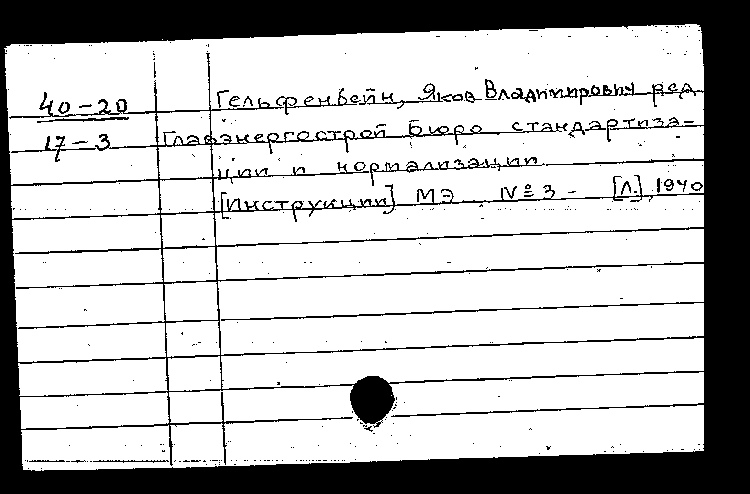 40-20 Гельфенбейн, Яков Владимирович ред
17-3 Главэнергострой Бюро стандартиза-
ции и нормализации
[Инструкции] МЭ № 3 - [Л.], 1940